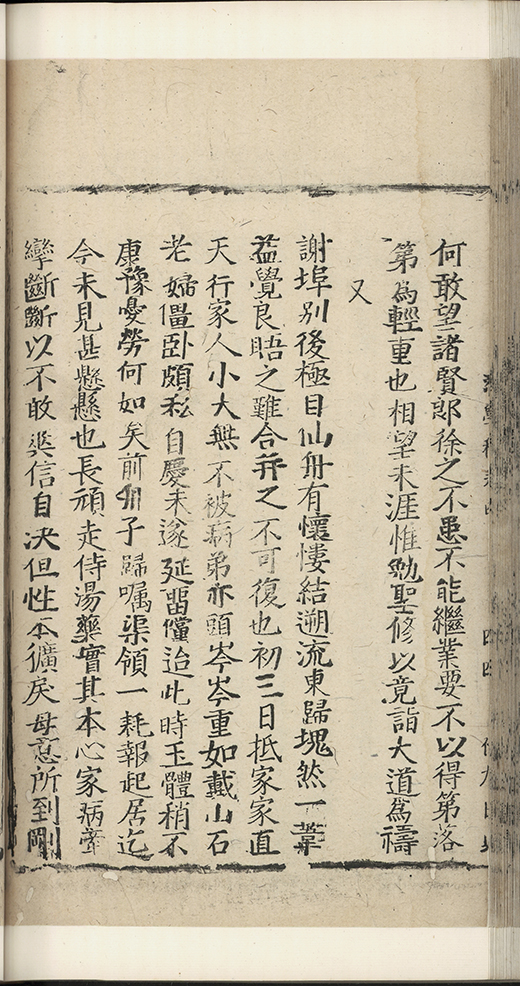 何敢望諸賢郎徐之不患不能繼業要不以得第落
第為輕重也相望未涯惟勉聖修以竟詣大道為禱
又
謝埠别後極目仙舟有懷悽結遡流東歸塊然一葦
益覺良晤之難合并之不可復也初三日抵家家直
天行家人小大無不被病弟亦頭岑岑重如戴山石
老婦僵卧頗私自慶未遂延留儻迨此時玉體稍不
康豫憂勞何如矣前舟子歸嘱渠領一耗報起居迄
今未見甚懸懸也長頑走侍湯藥實其本心家病牽
孿斷斷以不敢爽信自决但性本獷戾母意所到剛